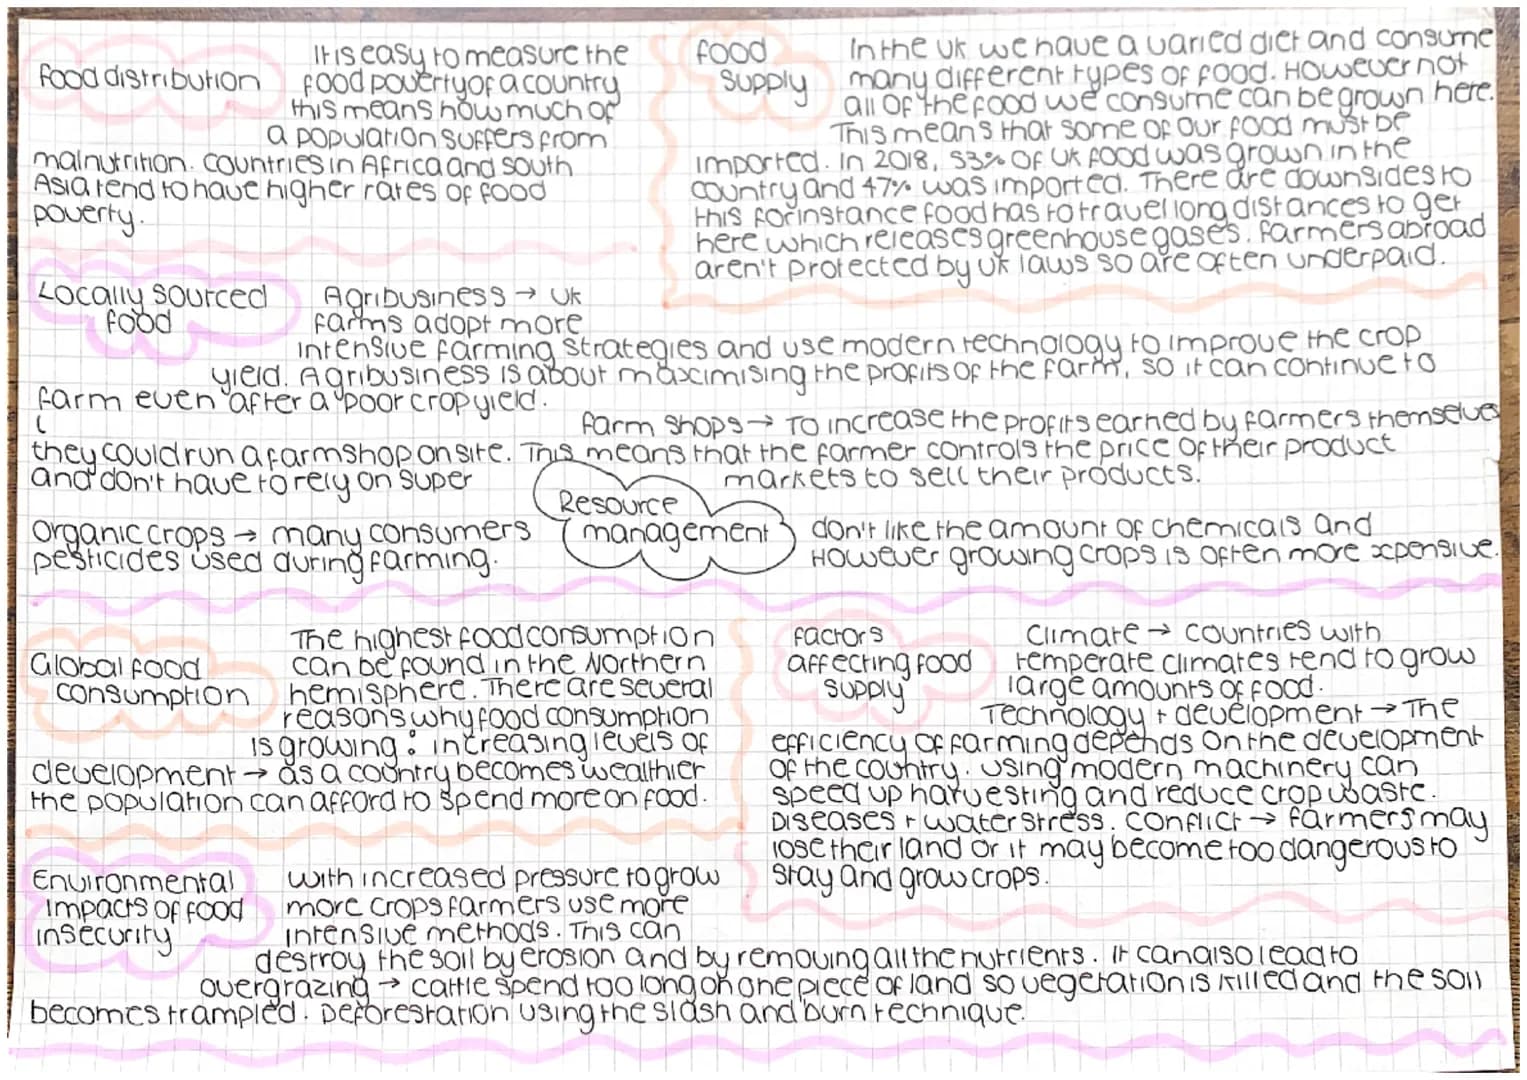 Food distribution
It is easy to measure the
food poverty of a country
this means how much of
a population suffers from
malnutrition. Countries in Africa and South
Asia tend to have higher rates of food
poverty.
food
supply
In the UK we have a varied diet and consume
many different types of food. However not
all of the food we consume can be grown here.
This means that some of our food must be
imported. In 2018, 53% of UK food was grown in the
country and 47% was imported. There are downsides to
this for instance food has to travel long distances to get
here which releases greenhouse gases. Farmers abroad
aren't protected by UK laws so are often underpaid.
Locally sourced
food
Agribusiness → UK
farms adopt more
intensive farming strategies and use modern technology to improve the crop
yield. Agribusiness is about maximising the profits of the farm, so it can continue to
farm even after a poor crop yield.
farm shops → To increase the profits earned by farmers themselves
they could run a farmshop on site. This means that the farmer controls the price of their product
and don't have to rely on super markets to sell their products.
Resource
management
Organic crops → many consumers don't like the amount of chemicals and
pesticides used during farming. However growing crops is often more xpensive.
Global food
consumption
The highest food consumption
can be found in the Northern
hemisphere. There are several
reasons why food consumption
is growing: increasing levels of
development → as a country becomes wealthier
the population can afford to spend more on food.
factors
affecting food
supply
Climate → countries with
temperate climates tend to grow
large amounts of food.
Technology + development → The
efficiency of farming depends on the development
of the country. Using modern machinery can
speed up harvesting and reduce crop waste.
Diseases + water stress. Conflict → farmers may
lose their land or it may become too dangerous to
stay and grow crops.
Environmental
impacts of food
insecurity
With increased pressure to grow
more crops farmers use more
intensive methods. This can
destroy the soil by erosion and by removing all the nutrients. It can also lead to
overgrazing → cattle spend too long on one piece of land so vegetation is killed and the soil
becomes trampled. Deforestation using the slash and burn technique.